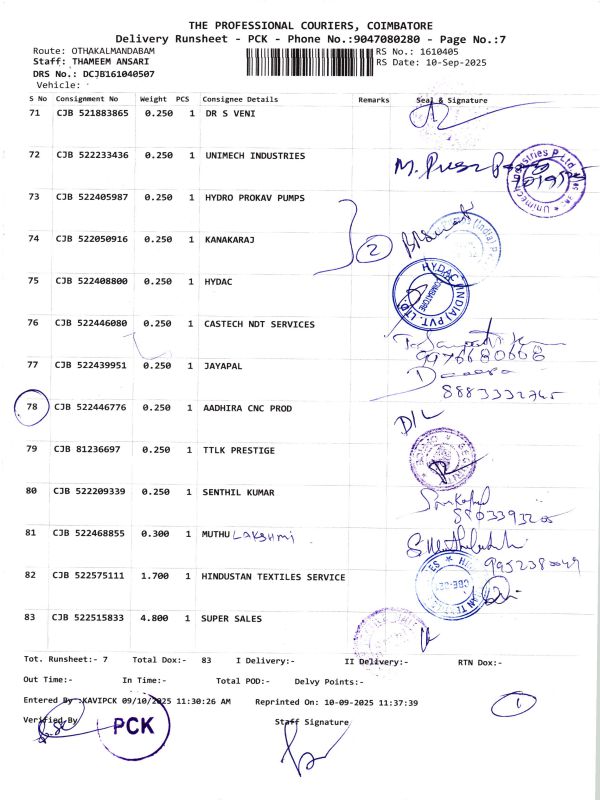 THE PROFESSIONAL COURIERS, COIMBATORE
Delivery Runsheet - PCK - Phone No.:9047080280 - Page No.:7
Route: OTHAKALMANDABAM RS No.: 1610405
Staff: THAMEEM ANSARI RS Date: 10-Sep-2025
DRS No.: DCJB161040507
Vehicle:
S No Consignment No Weight PCS Consignee Details Remarks Seal & Signature
71 CJB 521883865 0.250 1 DR S VENI
72 CJB 522233436 0.250 1 UNIMECH INDUSTRIES
73 CJB 522405987 0.250 1 HYDRO PROKAV PUMPS
74 CJB 522050916 0.250 1 KANAKARAJ 2
75 CJB 522408800 0.250 1 HYDAC HYDAC (INDIA) PVT. LTD. COIMBATORE
76 CJB 522446080 0.250 1 CASTECH NDT SERVICES
9976680668
77 CJB 522439951 0.250 1 JAYAPAL
78 CJB 522446776 0.250 1 AADHIRA CNC PROD D/L
79 CJB 81236697 0.250 1 TTLK PRESTIGE
80 CJB 522209339 0.250 1 SENTHIL KUMAR
81 CJB 522468855 0.300 1 MUTHU Lakshmi
82 CJB 522575111 1.700 1 HINDUSTAN TEXTILES SERVICE
83 CJB 522515833 4.800 1 SUPER SALES
Tot. Runsheet:- 7 Total Dox:- 83 I Delivery:- II Delivery:- RTN Dox:-
Out Time:- In Time:- Total POD:- Delvy Points:-
Entered By :KAVIPCK 09/10/2025 11:30:26 AM Reprinted On: 10-09-2025 11:37:39 1
Verified By PCK Staff Signature